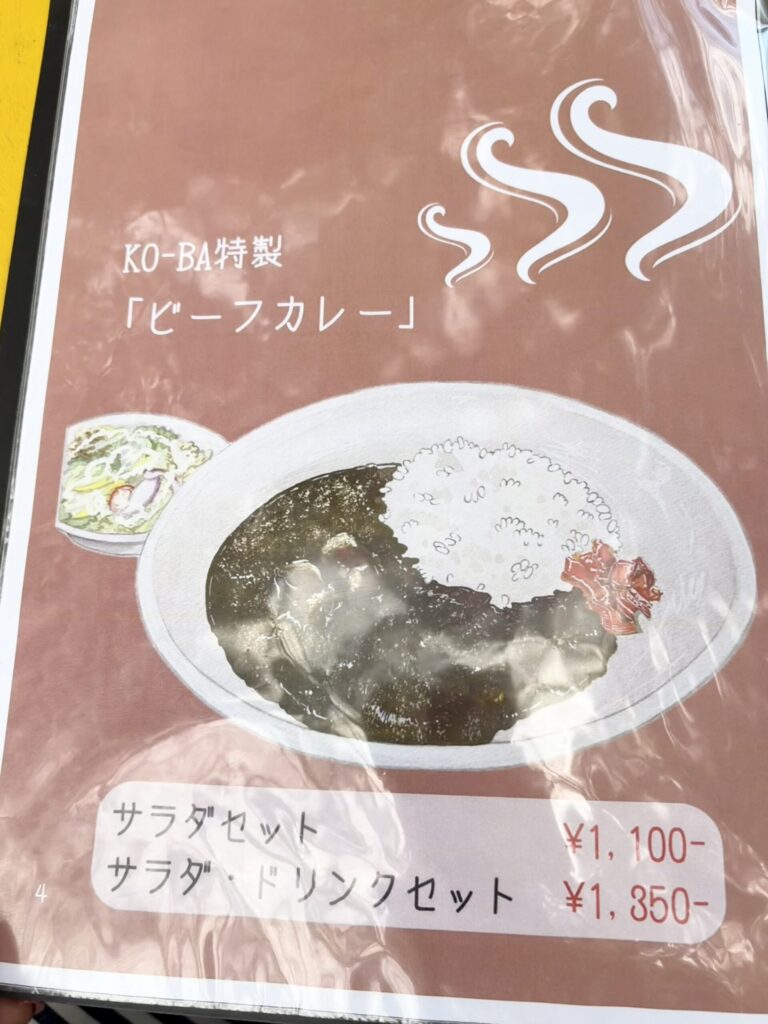 KO-BA特製
「ビーフカレー」
サラダセット ¥1,100-
サラダ・ドリンクセット ¥1,350-
4